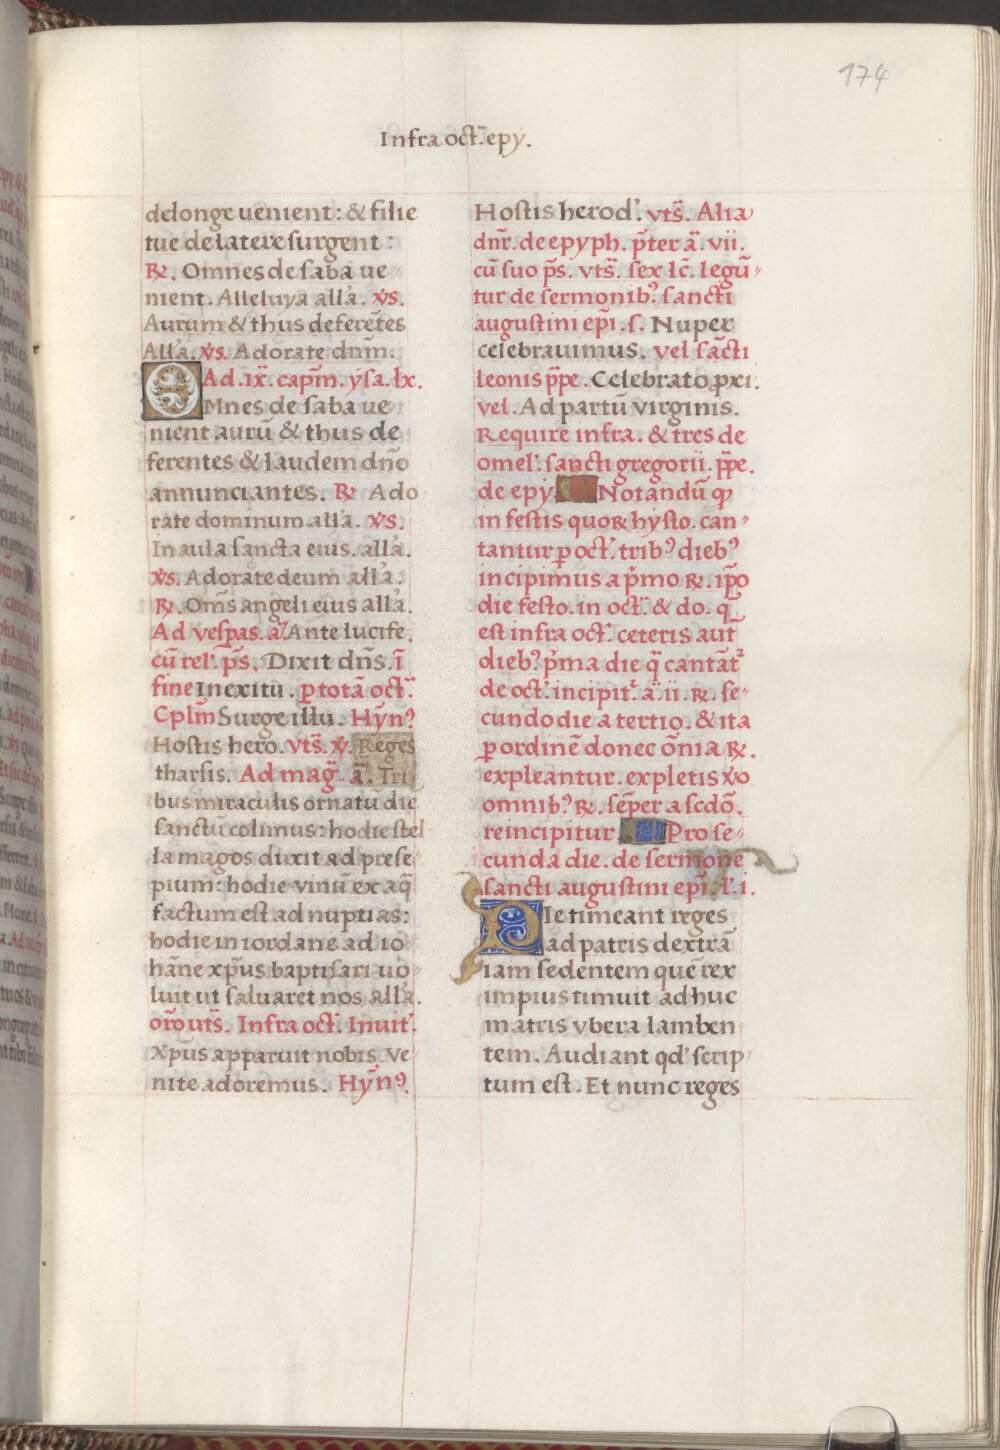 174
Infra oct̃. epy.
delonge uenient : & filie
tue de latere surgent :
℞. Omnes de saba ue
nient. Alleluya alla̓. ẋs.
Aurum & thus deferẽtes
Alla̓. ẋs. Adorate dnm̃.
Ad .ix̃. capm̃. ysa. lx.
OMnes de saba ue
nient aurũ & thus de
ferentes & laudem dño
annunciantes. ℞ Ado
rate dominum alla̓. ẋs.
In aula sancta eius. alla̓.
ẋs. Adorate deum alla̓.
℞. Oms̃ angeli eius alla̓.
Ad vespas. a᷉ Ante lucife.
cũ rel'. ps̃. Dixit dñs. ĩ
fine In exitu. ꝑ totã oct̃.
Cplm̃ Surge illu. Hyñꝰ
Hostis hero. vts̃. ẋ. Reges
tharsis. Ad mag̃. ã. Tri
bus miraculis ornatũ diẽ
sanctũ colimus: hodie stel
la magos duxit ad prese
pium: hodie vinũ ex aq̃
factum est ad nuptias:
hodie in iordane ad io
hãne xp̃us baptisari uo
luit ut saluaret nos alla̓.
orõ uts̃. Infra oct̃. Inuit'.
Xp̃us apparuit nobis. Ve
nite adoremus. Hyñꝰ.
Hostis herod'. vts̃. Alia
dnr̃. de epyph. p̃ter ã. vii.
cũ suo ps̃. vts̃. sex lc̃. legũ
tur de sermonibꝰ sancti
augustini epĩ. s. Nuper
celebrauimus. vel sãcti
leonis pp̃e. Celebrato ꝓxi.
vel. Ad partũ virginis.
Require infra. & tres de
omel'. sancti gregorii. pp̃e.
de epy. Notandũ ꝙ
in festis quoꝝ hysto. can
tantur ꝑ oct'. tribꝰ diebꝰ
incipimus a p̃mo ℞. ip̃o
die festo. in oct'. & do. q̃
est infra oct'. ceteris aut̃
diebꝰ p̃ma die q̃ cantãt᷑
de oct'. incipit᷑. ã. ii. ℞. se
cundo die a tertio. & ita
ꝑ ordinẽ donec õnia ℞.
expleantur. expletis ẋo
omnibꝰ ℞. sẽper a scdõ.
reincipitur. Pro se
cunda die. de sermone
sancti augustini epĩ. l'. i.
PIe timeant reges
ad patris dextrã
iam sedentem quẽ rex
impius timuit adhuc
matris vbera lamben
tem. Audiant qd' scrip
tum est. Et nunc reges